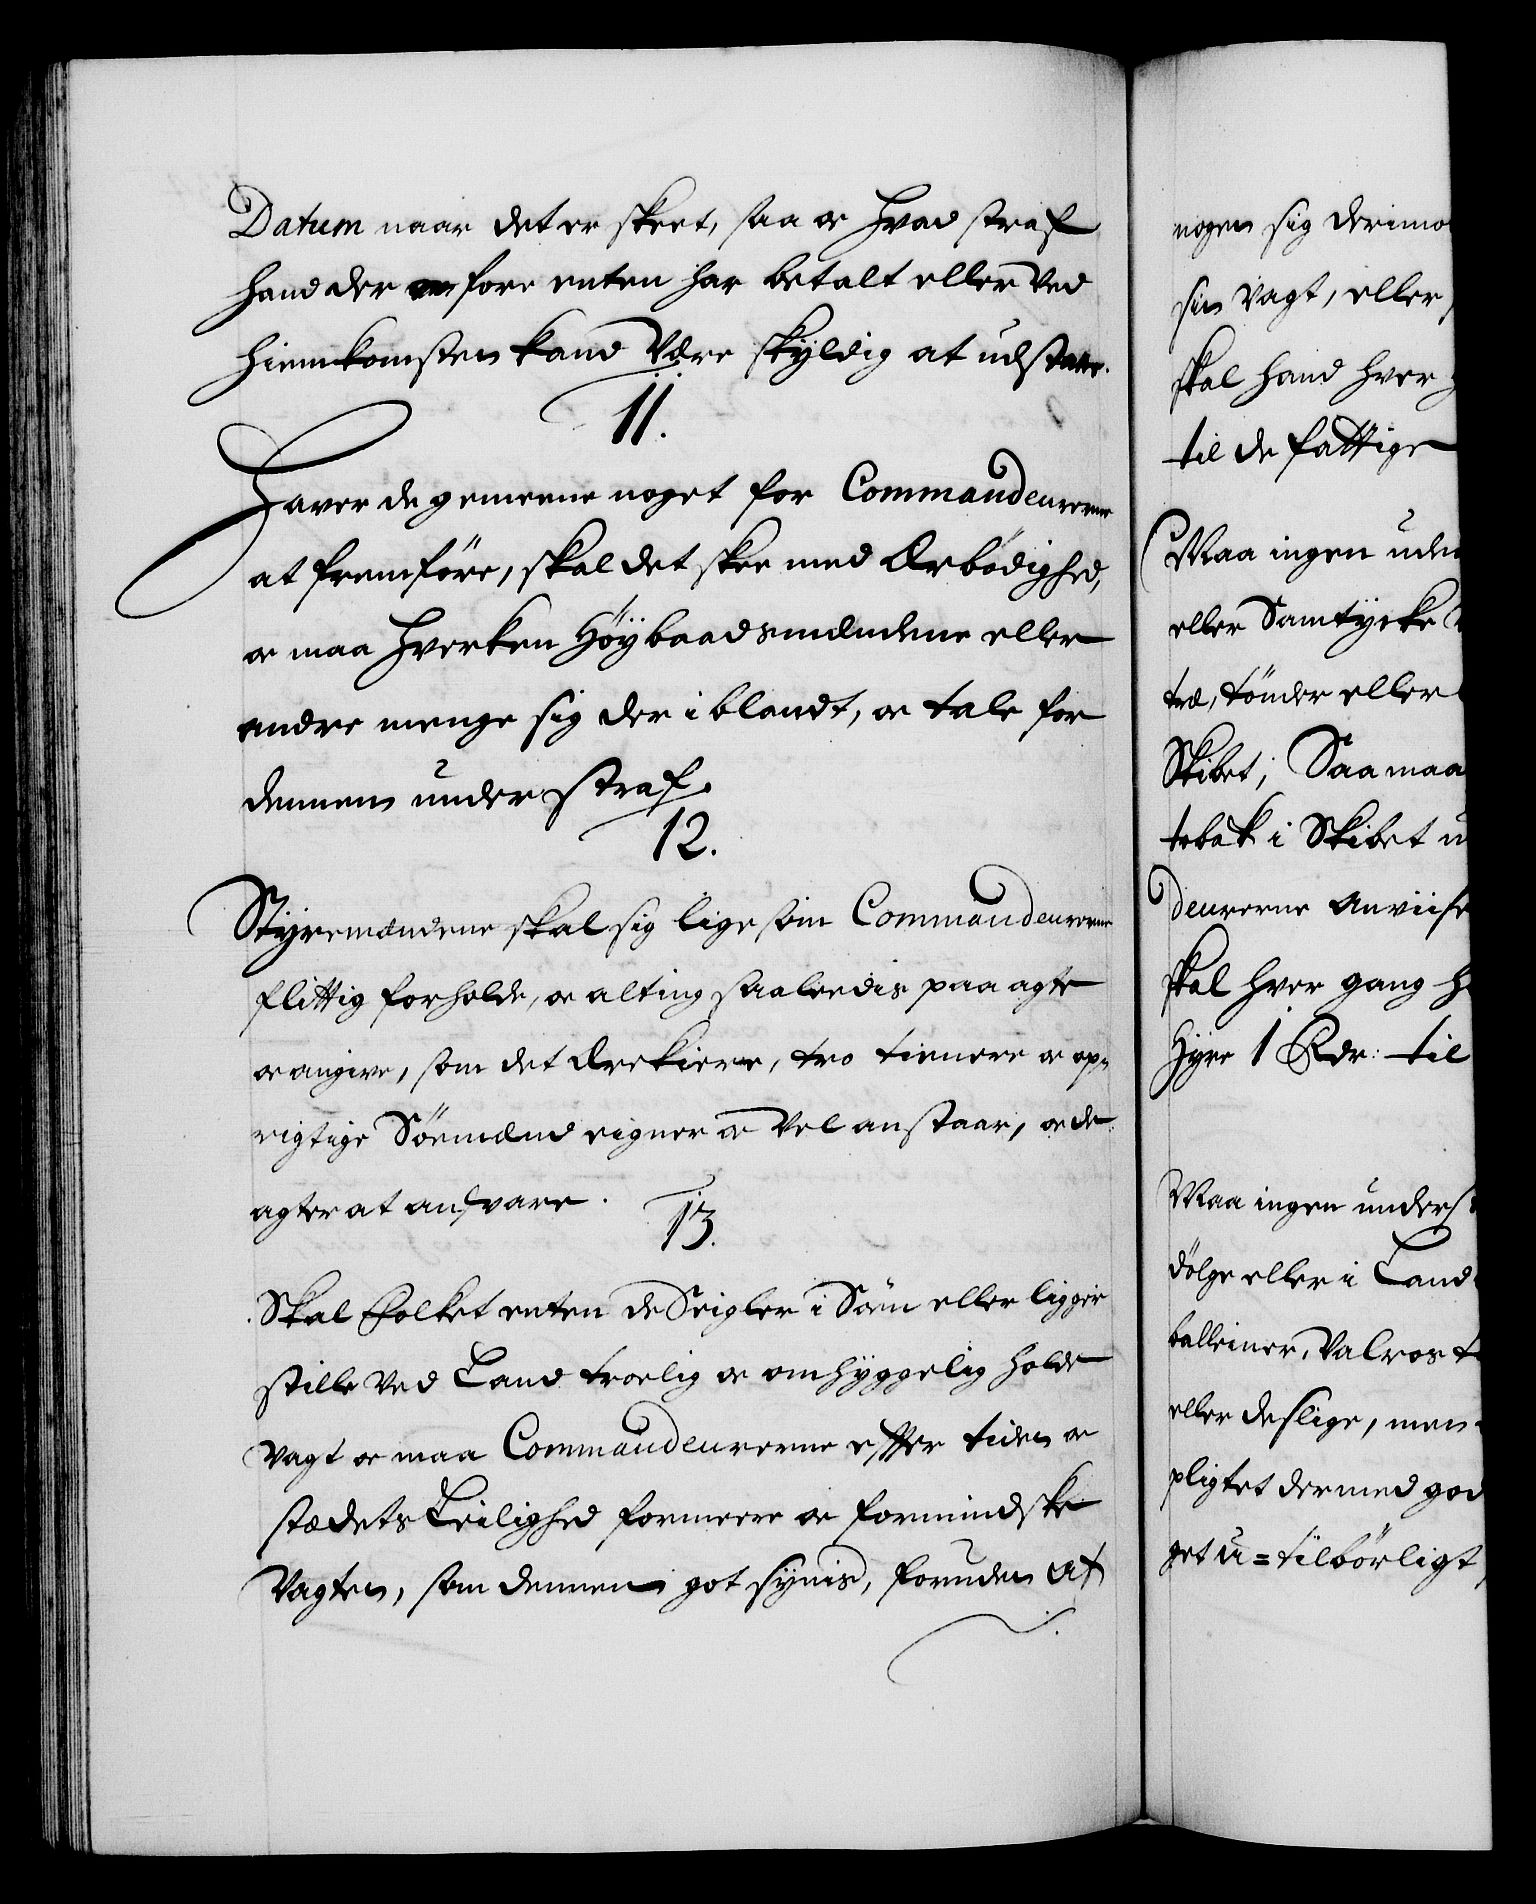 Datum naar det er skeet, saa og hvad straf
hand der fore enten har betalt eller ved
hiemkomsten kand være skyldig at udstaae.
11.
Haver de gemeene noget for Commandeurerne
at fremføre, skal det skee med Ærbødighed,
og maa hverken Høybaadsmændene eller
andre menge sig der iblandt, og tale for
dennem under straf.
12.
Styremændene skal sig lige som Commandeurerne
flittig forholde, og alting saaleedis paa agte
og angive, som det ærekiere, tro tienere og op-
rigtige Søemænd eigner og vel anstaar, og de
agter at ansvare.
13.
Skal Folket enten de Seigler i Søen eller ligger
stille ved Land troelig og omhyggelig holde
vagt og maa Commandeurerne efter tiden og
stædets Leilighed formeere og formindske
Vagten, som dennem got synis, foruden at
nogen sig derimo
sin vagt, eller
skal hand hver
til de fattige
Maa ingen uden
eller Samtycke
træ, tønder eller
Skibet; Saa maa
tobak i Skibet u
deurerne anviise
skal hver gang h
Hyre 1 Rdr: til
Maa ingen under
dølge eller i Land
balleiner, Valros t
eller deslige, men
pligtet dermed god
get u=tilbørligt,